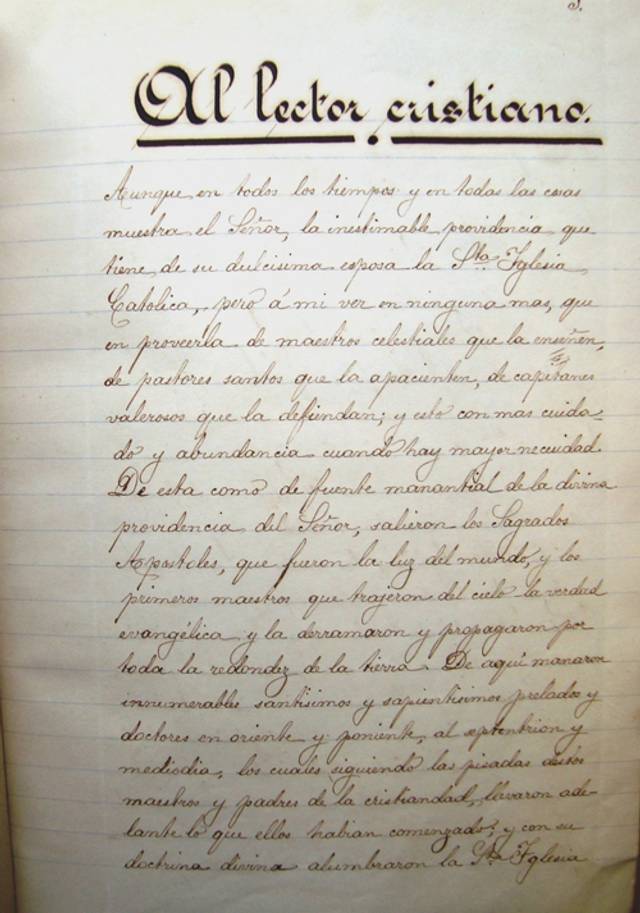 3.
Al lector cristiano.
Aunque en todos los tiempos y en todas las cosas
muestra el Señor, la inestimable providencia que
tiene de su dulcisima esposa la Sta. Iglesia
Catolica, pero á mi ver en ninguna mas, que
en proveerla de maestros celestiales que la enseñen,
de pastores santos que la apacienten, de capitanes
valerosos que la defiendan; y esto con mas cuida-
do y abundancia cuando hay mayor necesidad.
De esta como de fuente manantial de la divina
providencia del Señor, salieron los Sagrados
Apostoles, que fueron la luz del mundo, y los
primeros maestros que trajeron del cielo la verdad
evangélica y la derramaron y propagaron por
toda la redondez de la tierra. De aquí manaron
innumerables santisimos y sapientisimos prelados y
doctores en oriente y poniente, al septentrion y
mediodia, los cuales siguiendo las pisadas destos
maestros y padres de la cristiandad, llevaron ade-
lante lo que ellos habian comenzado; y con su
doctrina divina alumbraron la Sta. Iglesia